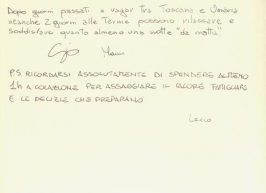 Dopo giorni passati a vagar tra Toscana e Umbria
neanche 2 giorni alle Terme possono rilassare e
soddisfare quanto almeno una notte "da matti"
P.S. RICORDARSI ASSOLUTAMENTE DI SPENDERE ALMENO
1h A COLAZIONE PER ASSAGGIARE IL
E LE DELIZIE CHE PREPARANO